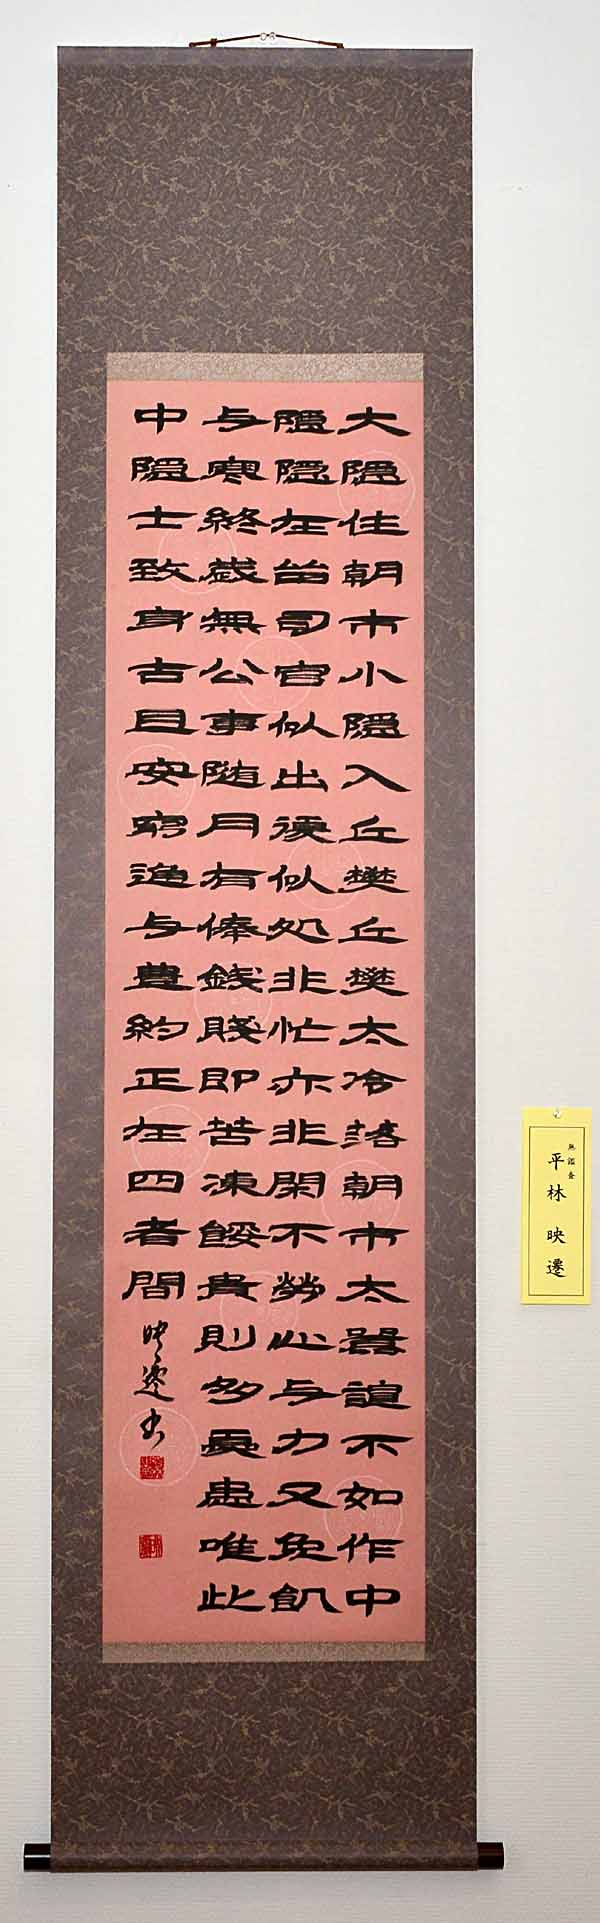 大隠住朝市小隠入丘樊丘樊太冷落朝市太囂諠不如作中
隠隠在留司官似出復似処非忙亦非閑不勞心与力又免飢
与寒終歳無公事随月有俸銭賤即苦凍餒貴則多憂患唯此
中隠士致身吉且安窮通与豊約正在四者間
映遷書
無鑑査
平林 映遷